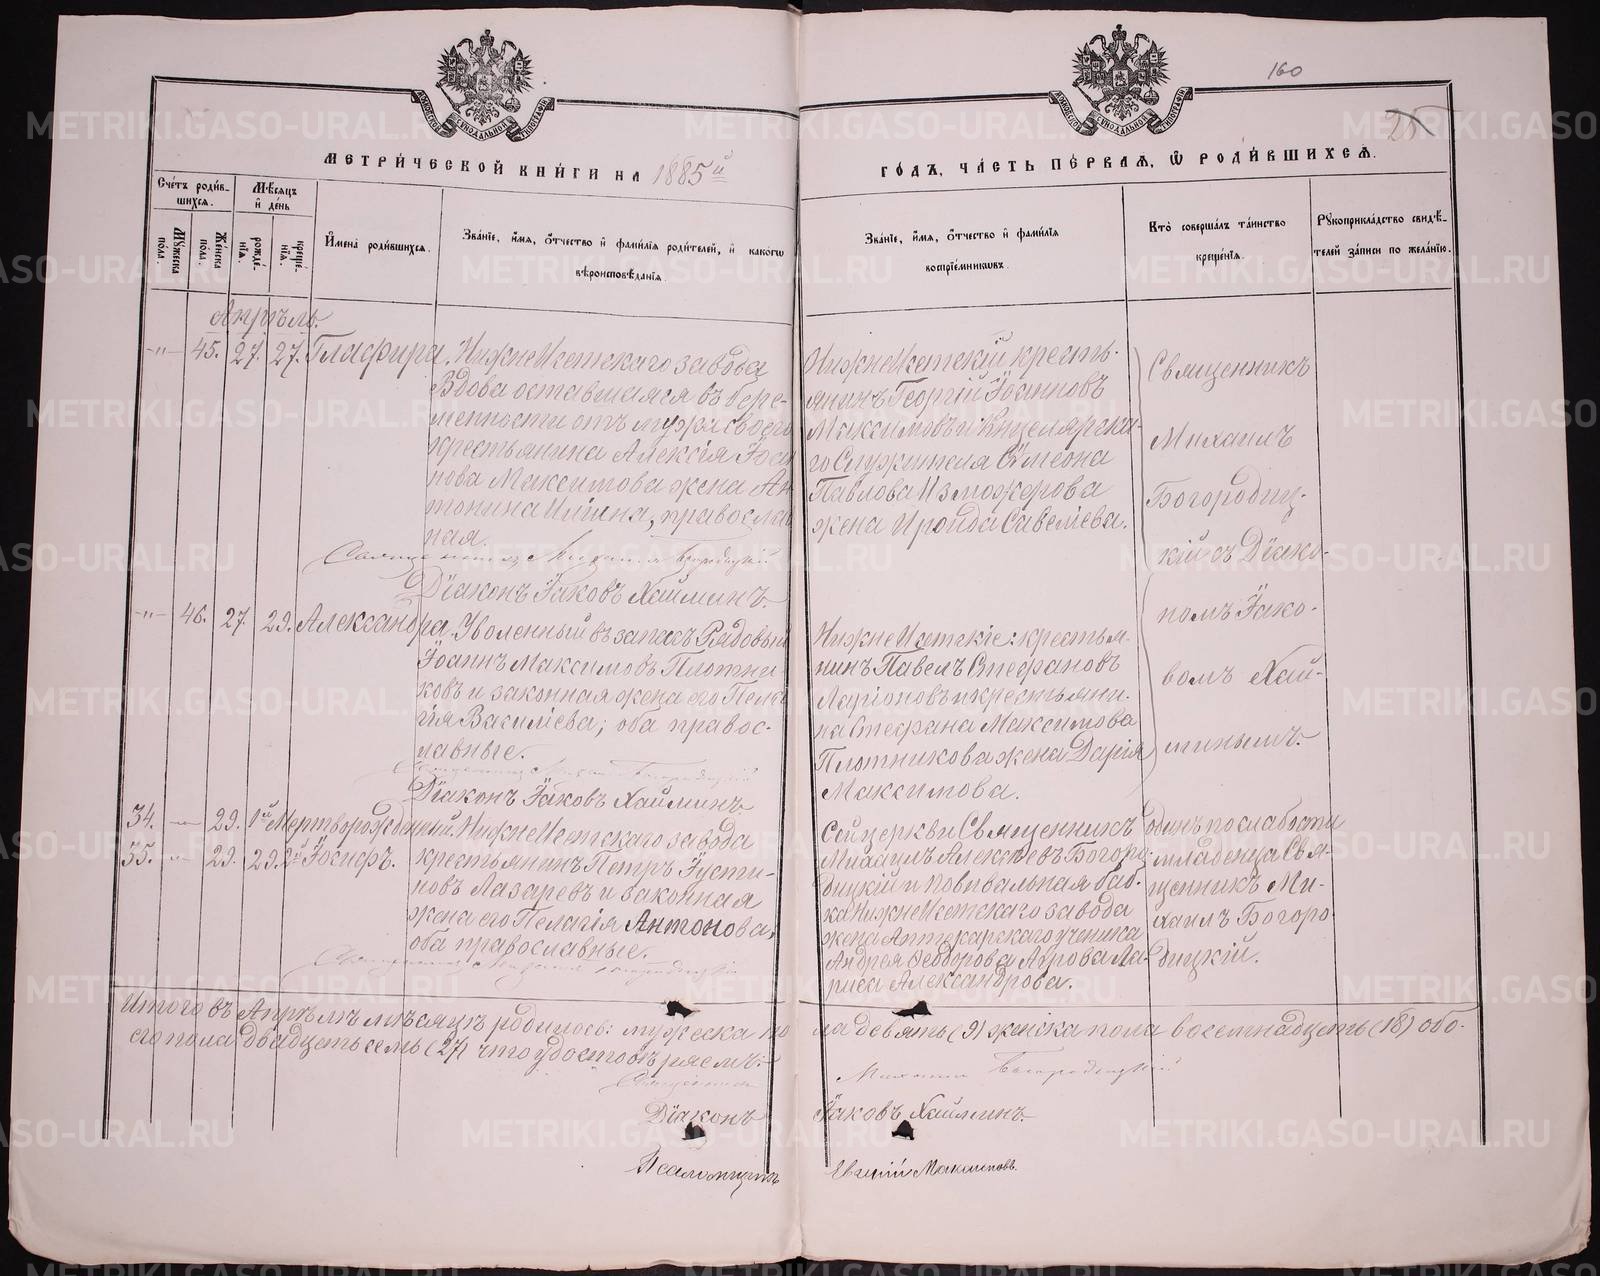 160
25
МЕТРИ́ЧЕСКОЙ КНИ́ГИ НА 1885й
ГО́ДЪ, ЧА́СТЬ ПЕ́РВАЯ, Ѡ РОДИ́ВШИХСЯ.
Сче́тъ роди́в-
шихся.
Мѣ́сяцъ
и де́нь
Му́жеска
по́ла.
Же́нска
по́ла.
рожде́-
нїя.
креще́-
нїя.
Имена̀ роди́вшихся.
Зва́нїе, и́мя, о́тчество и фами́лїя роди́телей, и како́гѡ
вѣроисповѣ́данїя.
Зва́нїе, и́мя, о́тчество и фами́лїя
воспрїе́мниковъ.
Кто̀ соверша́лъ та́инство
креще́нїя.
Рукоприкла́дство свидѣ́-
телей за́писи по жела́нїю.
Апрѣль.
-"- 45. 27. 27. Глафира. НижнеИсетскаго завода
Вдова оставшаяся въ бере-
менности отъ мужа своего
крестьянина Алексія Іоан
нова Максимова жена Ан
тонина Ильина, православ
ная.
Священникъ Михаилъ Богородицкій
Діаконъ Іаковъ Хайминъ.
НижнеИсетскій кресть-
янинъ Георгій Іоанновъ
Максимовъ и Канцелярска-
го Служителя Симеона
Павлова Изможерова
жена Ироида Савеліева.
Священникъ
Михаилъ
Богородиц-
кій съ Діако-
номъ Іако-
вомъ Хай-
минымъ.
-"- 46. 27. 29. Александра. Уволенный въ запасъ Рядовый
Іоаннъ Максимовъ Плотни-
ковъ и законная жена его Пела
гія Василіева; оба правос-
лавные.
Священникъ Михаилъ Богородицкій
Діаконъ Іаковъ Хайминъ.
НижнеИсетскіе: крестья-
нинъ Павелъ Стефановъ
Ларіоновъ и крестьяни-
на Стефана Максимова
Плотникова жена Дарія
Максимова.
34. -"- 29. 1й Мертворожденный. НижнеИсетскаго завода
35. -"- 29. 29. 2й Іосифъ. крестьянинъ Петръ Іусти-
новъ Лазаревъ и законная
жена его Пелагія Антонова,
оба православные.
Священникъ Михаилъ Богородицкій
Сей церкви Священникъ
Михаилъ Алексѣевъ Богоро-
дицкій и повивальная баб-
ка НижнеИсетскаго завода
жена Аптекарскаго ученика
Андрея Ѳеодорова Ла-
риса Александрова.
одинъ по слабости
младенца Свя-
щенникъ Ми-
хаилъ Богоро-
дицкій.
Итого въ Апрѣлѣ мѣсяцѣ родилось: мужеска по
ла девять (9) женска пола восемнадцать (18) обо-
его пола двадцать семь (27) что удостовѣряемъ:
Священникъ Михаилъ Богородицкій
Діаконъ Іаковъ Хайминъ.
Псаломщикъ Евгеній Максимовъ.
METRIKI.GASO-URAL.RU